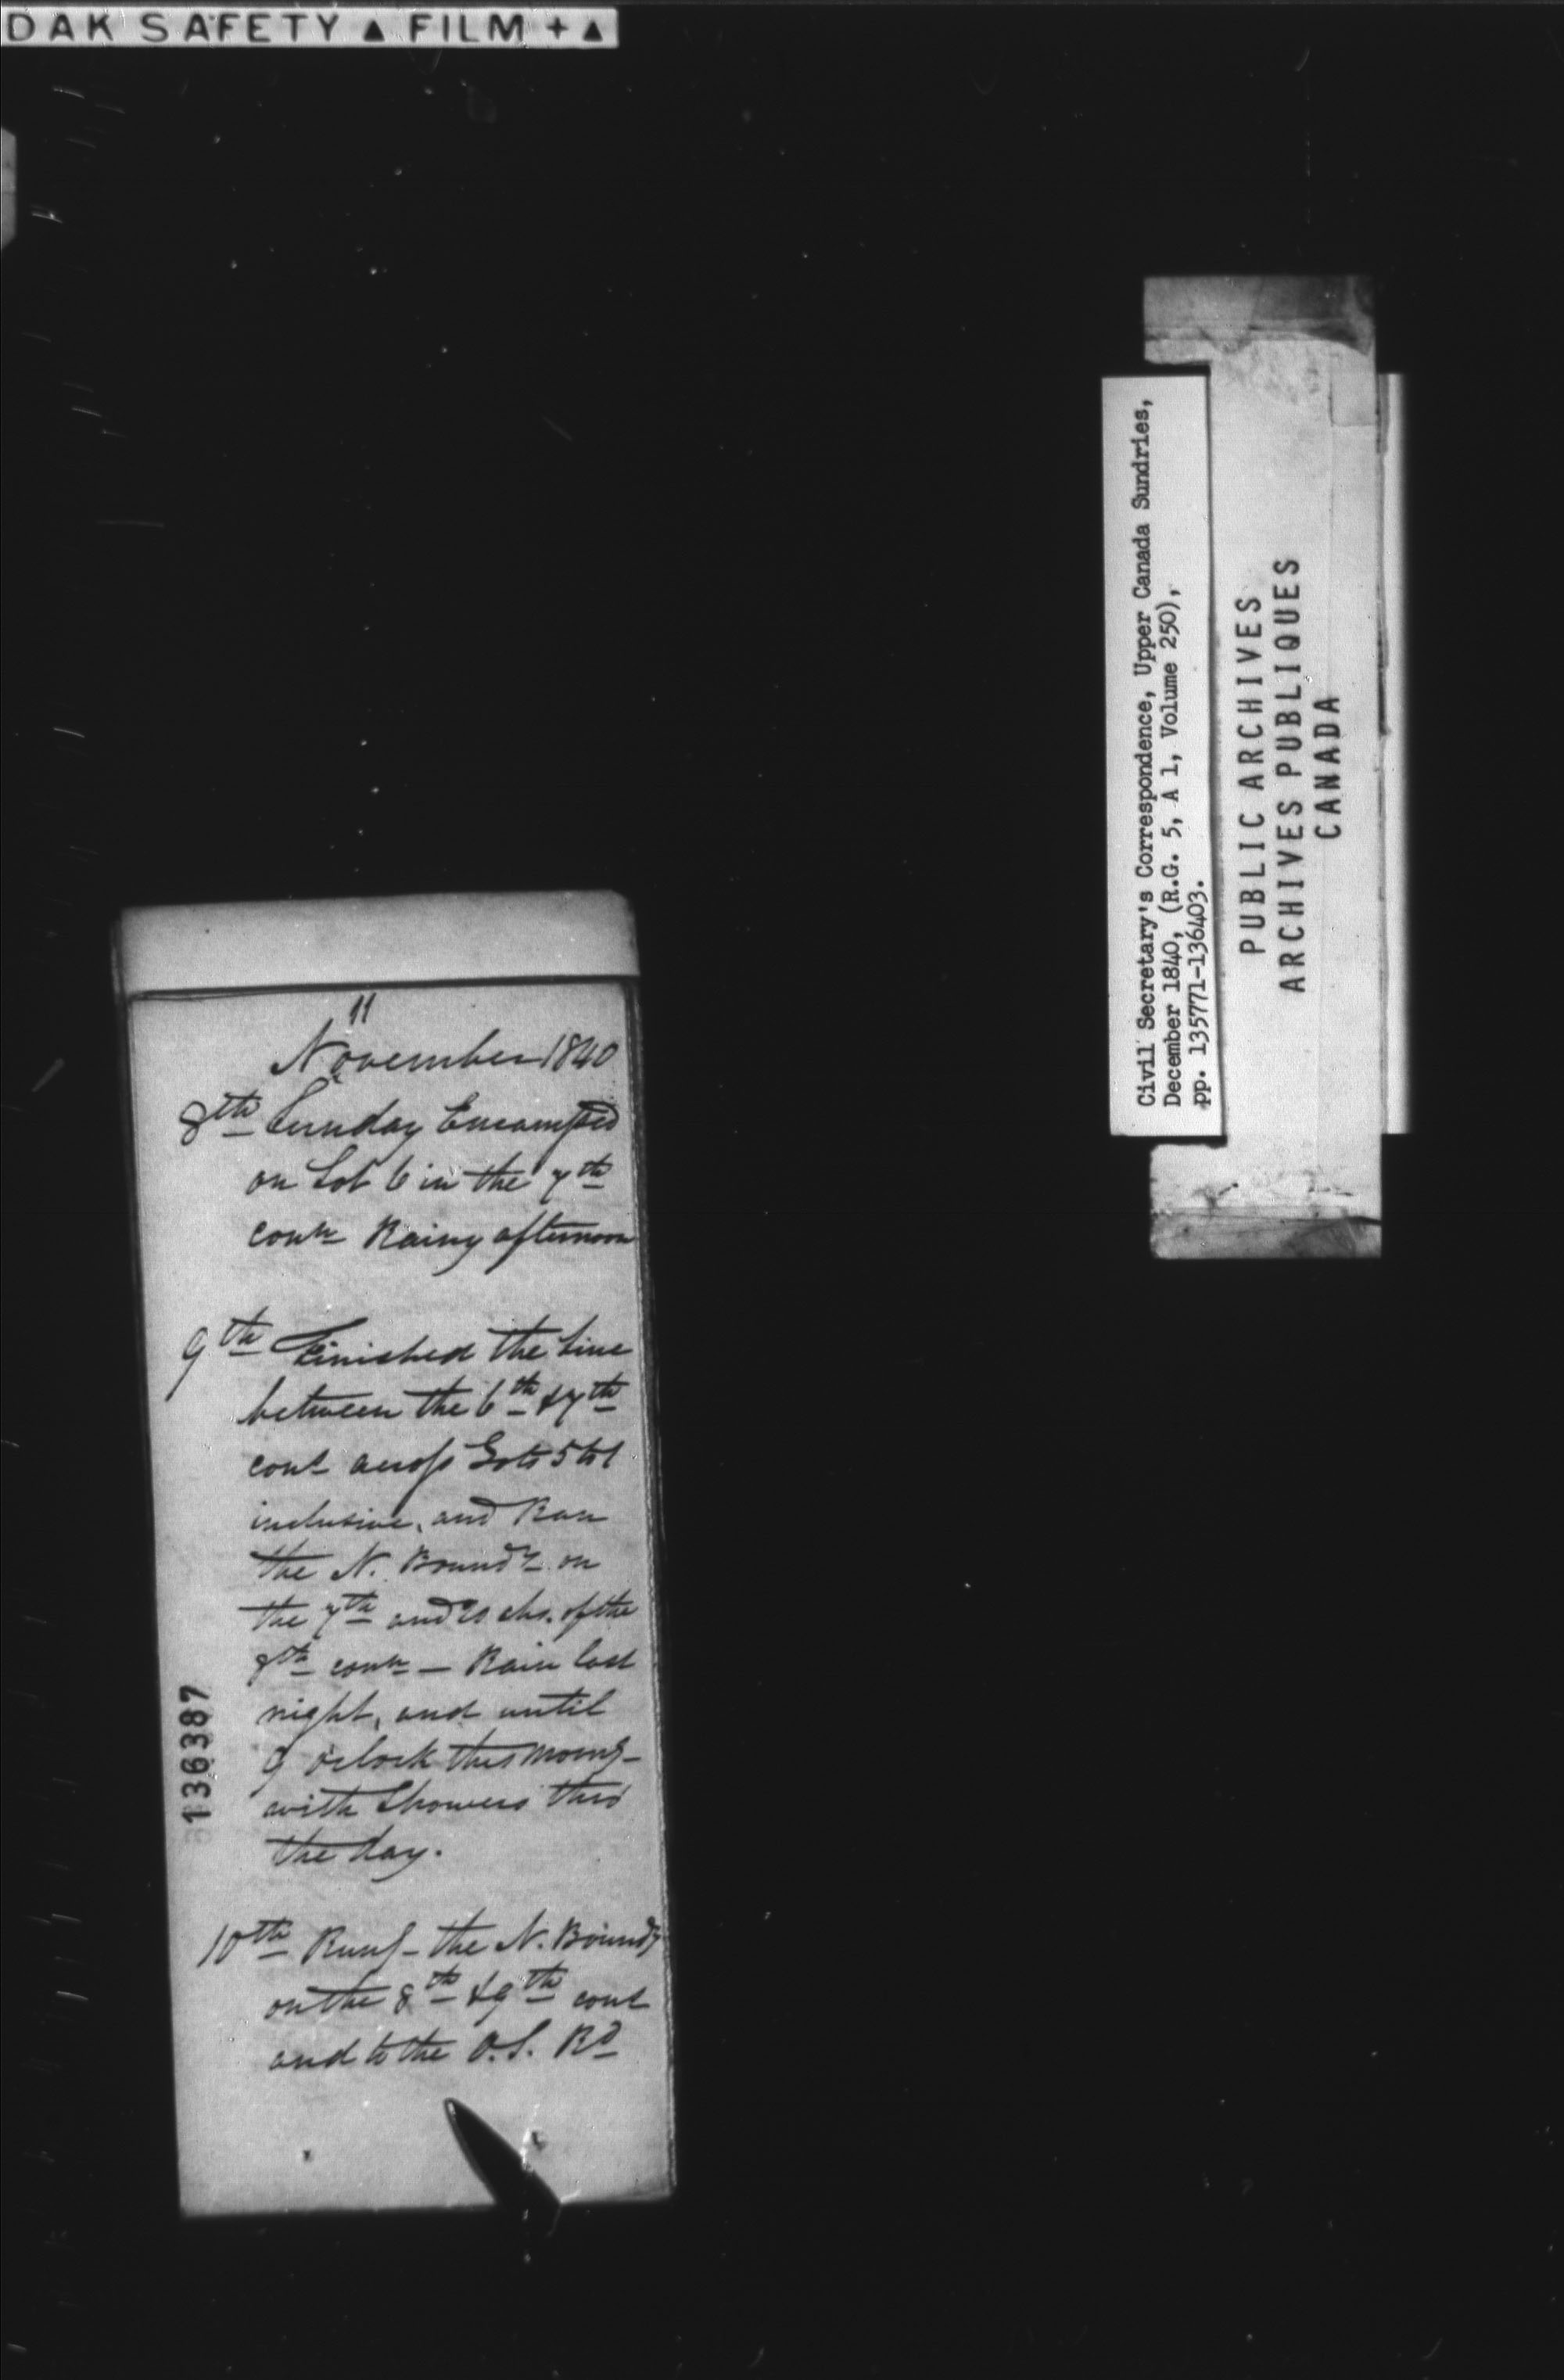 DAK SAFETY ▲ FILM + ▲
11
November 1840
8th Sunday Encamped
on Lot 6 in the 7th
conn Rainy afternoon
9th Finished the Line
between the 6th & 7th
cons across Lots 5 to 1
inclusive, and Ran
the N. Boundy on
the 7th and 20 chs. of the
8th conn — Rain last
night, and until
9 oclock this morng
with Showers thro
the day.
10th Rung the N. Boundy
on the 8th & 9th cons
and to the O.S. Rd
136387
Civil Secretary's Correspondence, Upper Canada Sundries,
December 1840, (R.G. 5, A 1, Volume 250),
pp. 135771-136403.
PUBLIC ARCHIVES
ARCHIVES PUBLIQUES
CANADA